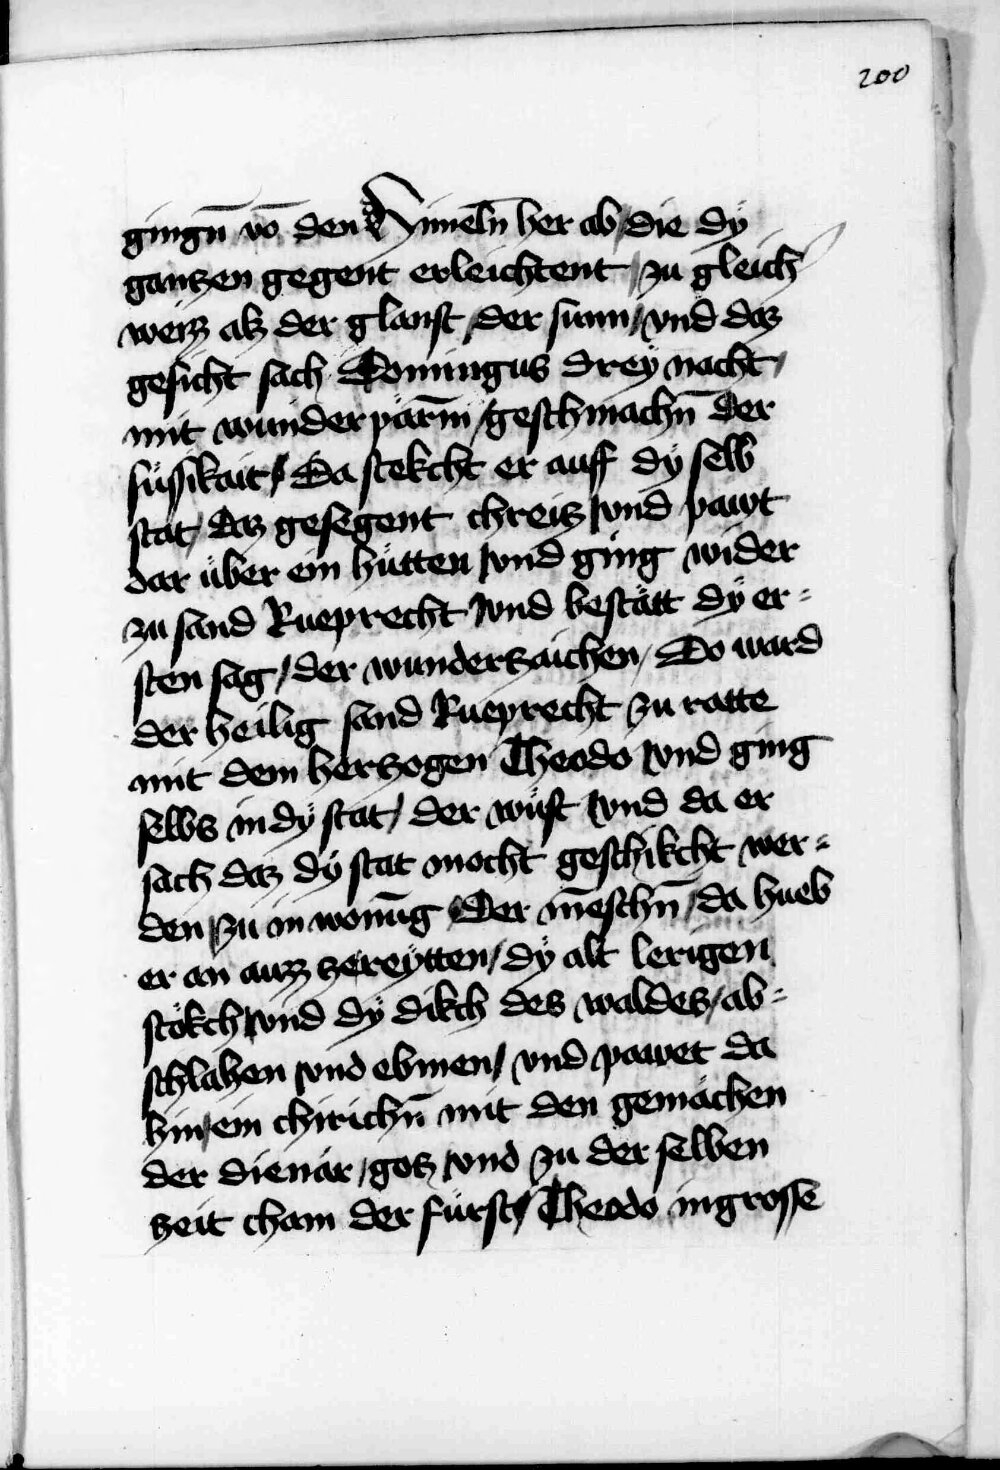 200
gingn̄ vō den Himeln̄ her ab / die dÿ
gantzen gegent erleichtent / zu gleich
weizz alz der glanst / der sunn / vnd daz
gesicht sach Domingus dreÿ nacht /
mit wunderpärm̄ / geschmachn̄ der
süssikait / Da stekcht er auff dÿ selb
stat / daz gesegent chreitz / vnd pawt
dar über ein hütten / vnd ging wider
zu sand Rueprecht / vnd bestätt dÿ er=
sten sag / der wundertzaichen / Do ward
der heilig sand Rueprecht zu ratte
mit dem hertzogen Theodo / vnd ging
selbs in dÿ stat / der wüst / vnd da er
sach daz dÿ stat mocht geschikcht wer=
den / zu in wonūg / der mēschn̄ / da hueb
er an auzz tzereÿtten / dÿ alt lerigen
stökch / vnd dÿ dikch des waldes / ab=
schlahen / vnd ebmen / vnd pawet da
hin / ein chirichn̄ mit den gemächen
der dienär / gotz / vnd zu der selben
tzeit cham der fürst / Theodo in grosse